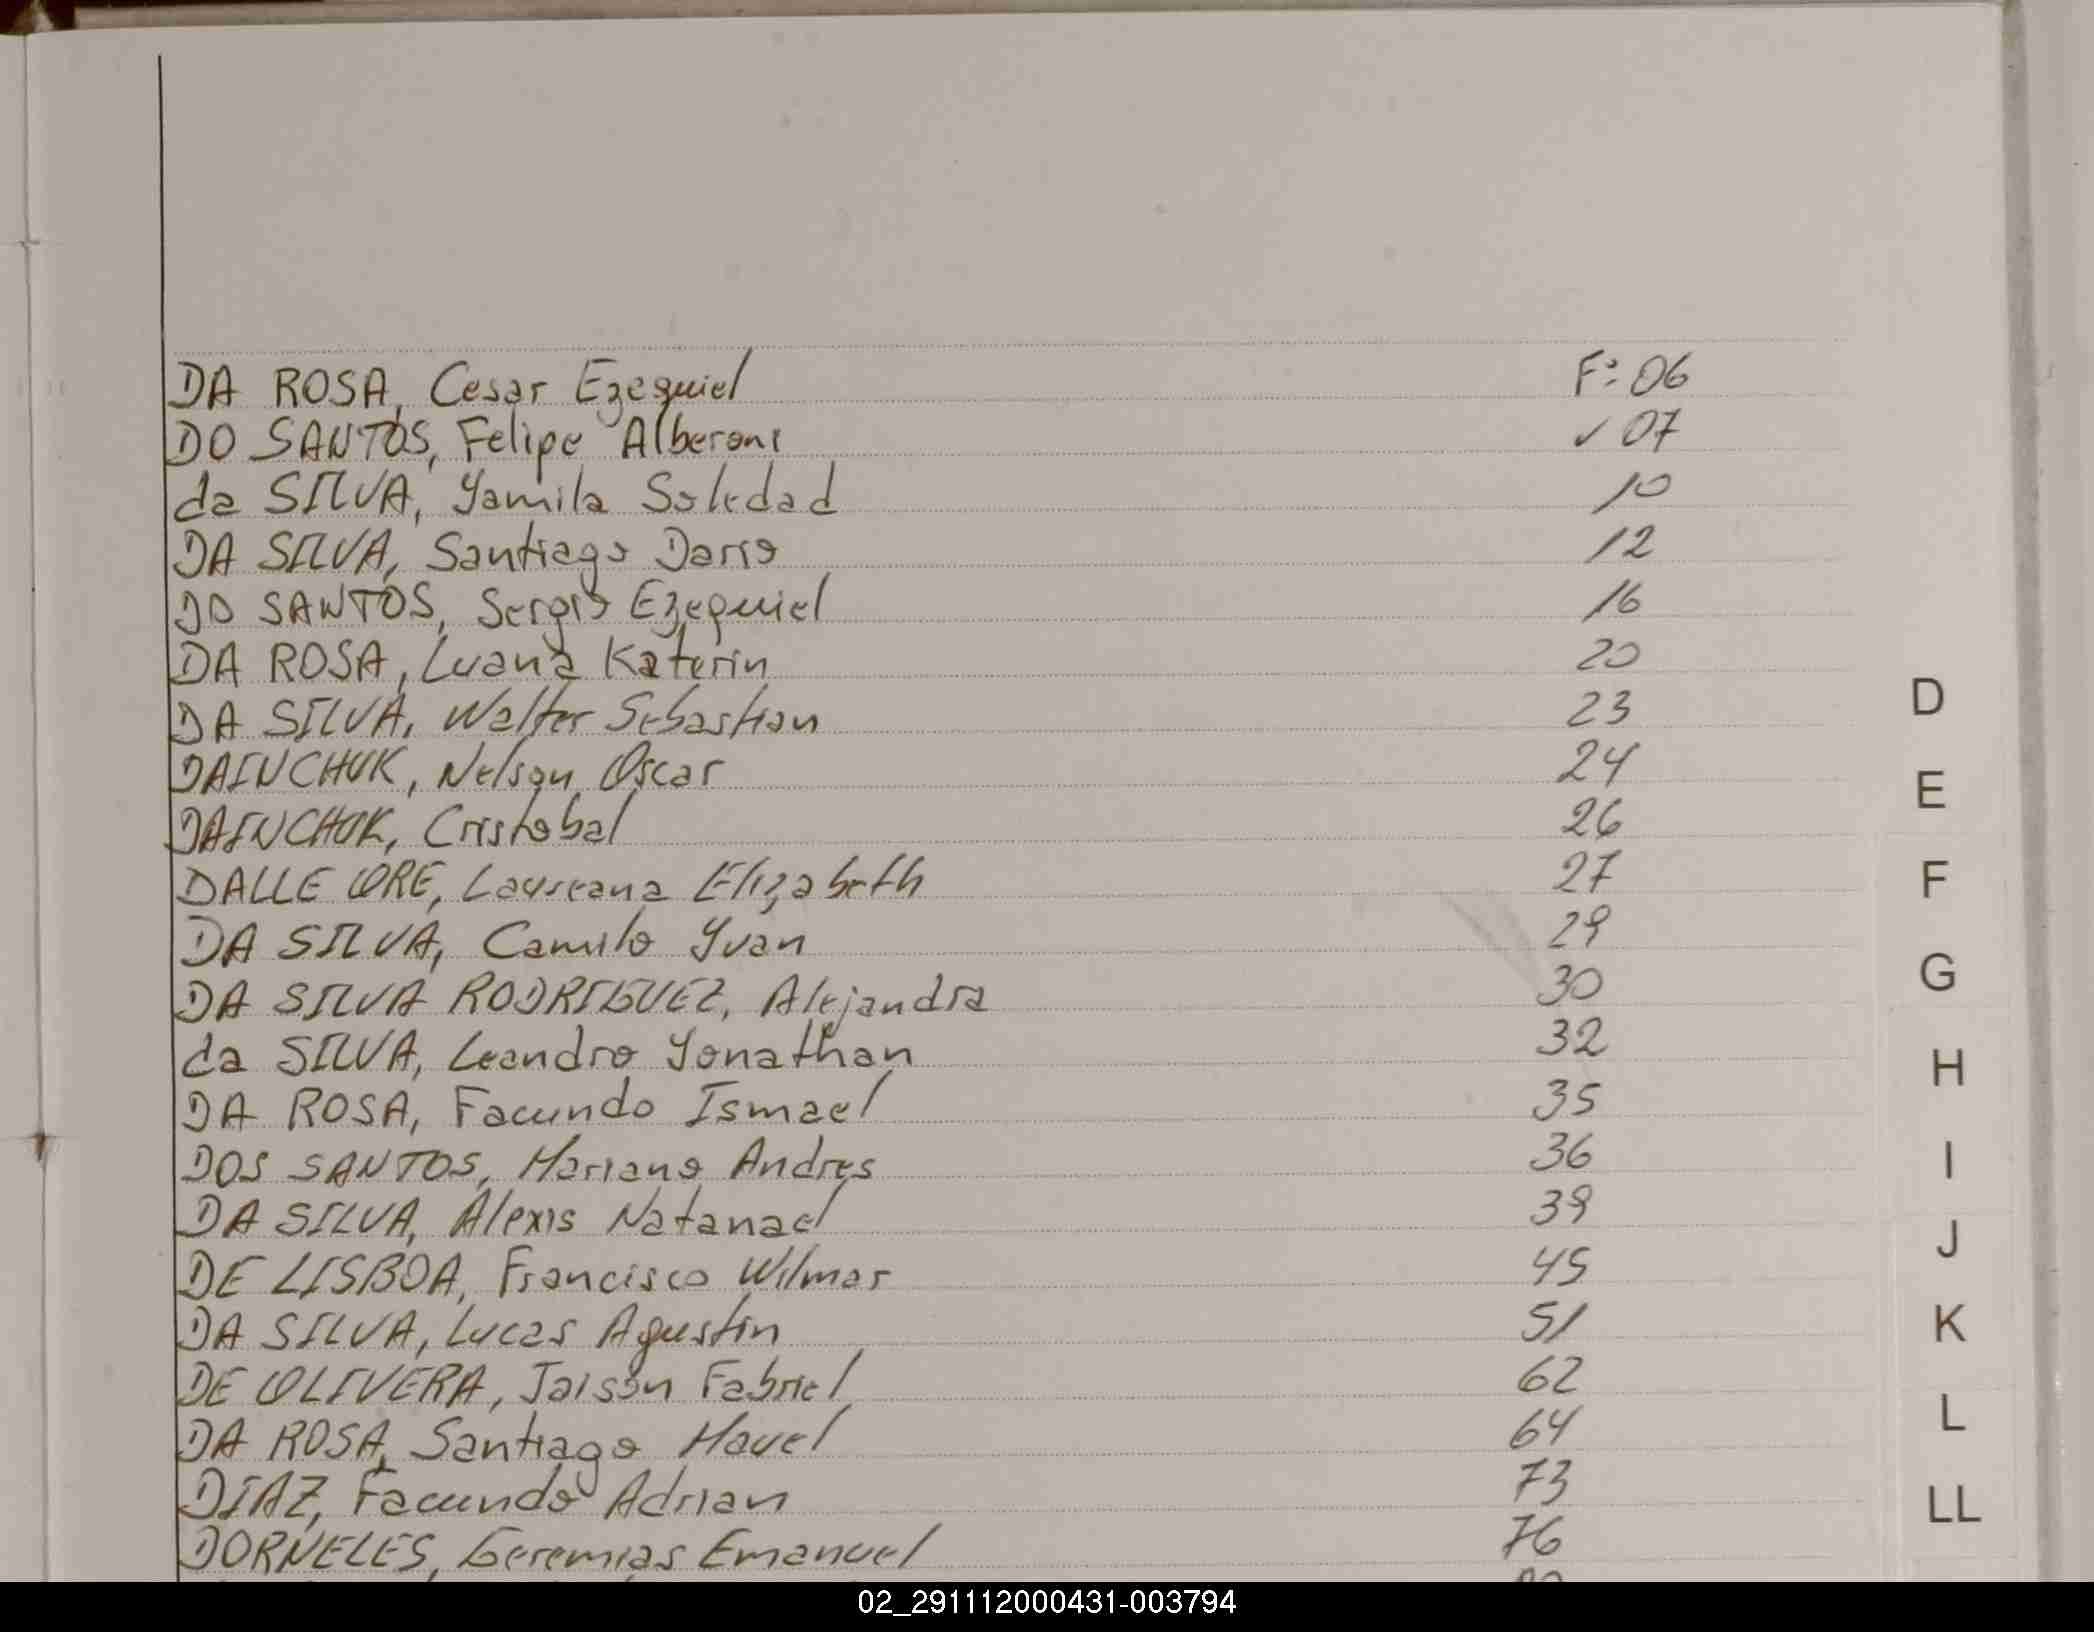 DA ROSA, Cesar Ezequiel F: 06
DO SANTOS, Felipe Alberoni ✓ 07
da SILVA, Yamila Soledad 10
DA SILVA, Santiago Dario 12
DO SANTOS, Sergio Ezequiel 16
DA ROSA, Luana Katerin 20
DA SILVA, Walter Sebastian 23
DAINCHUK, Nelson Oscar 24
DAINCHUK, Cristobal 26
DALLE ORE, Laureana Elizabeth 27
DA SILVA, Camilo Yvan 29
DA SILVA RODRIGUEZ, Alejandra 30
da SILVA, Leandro Yonathan 32
DA ROSA, Facundo Ismael 35
DOS SANTOS, Mariano Andres 36
DA SILVA, Alexis Natanael 39
DE LISBOA, Francisco Wilmar 45
DA SILVA, Lucas Agustin 51
DE OLIVERA, Jaison Fabriel 62
DA ROSA, Santiago 64
DIAZ, Facundo Adrian 73
DORNELES, Geremias Emanuel 76
D
E
F
G
H
I
J
K
L
LL
02_291112000431-003794